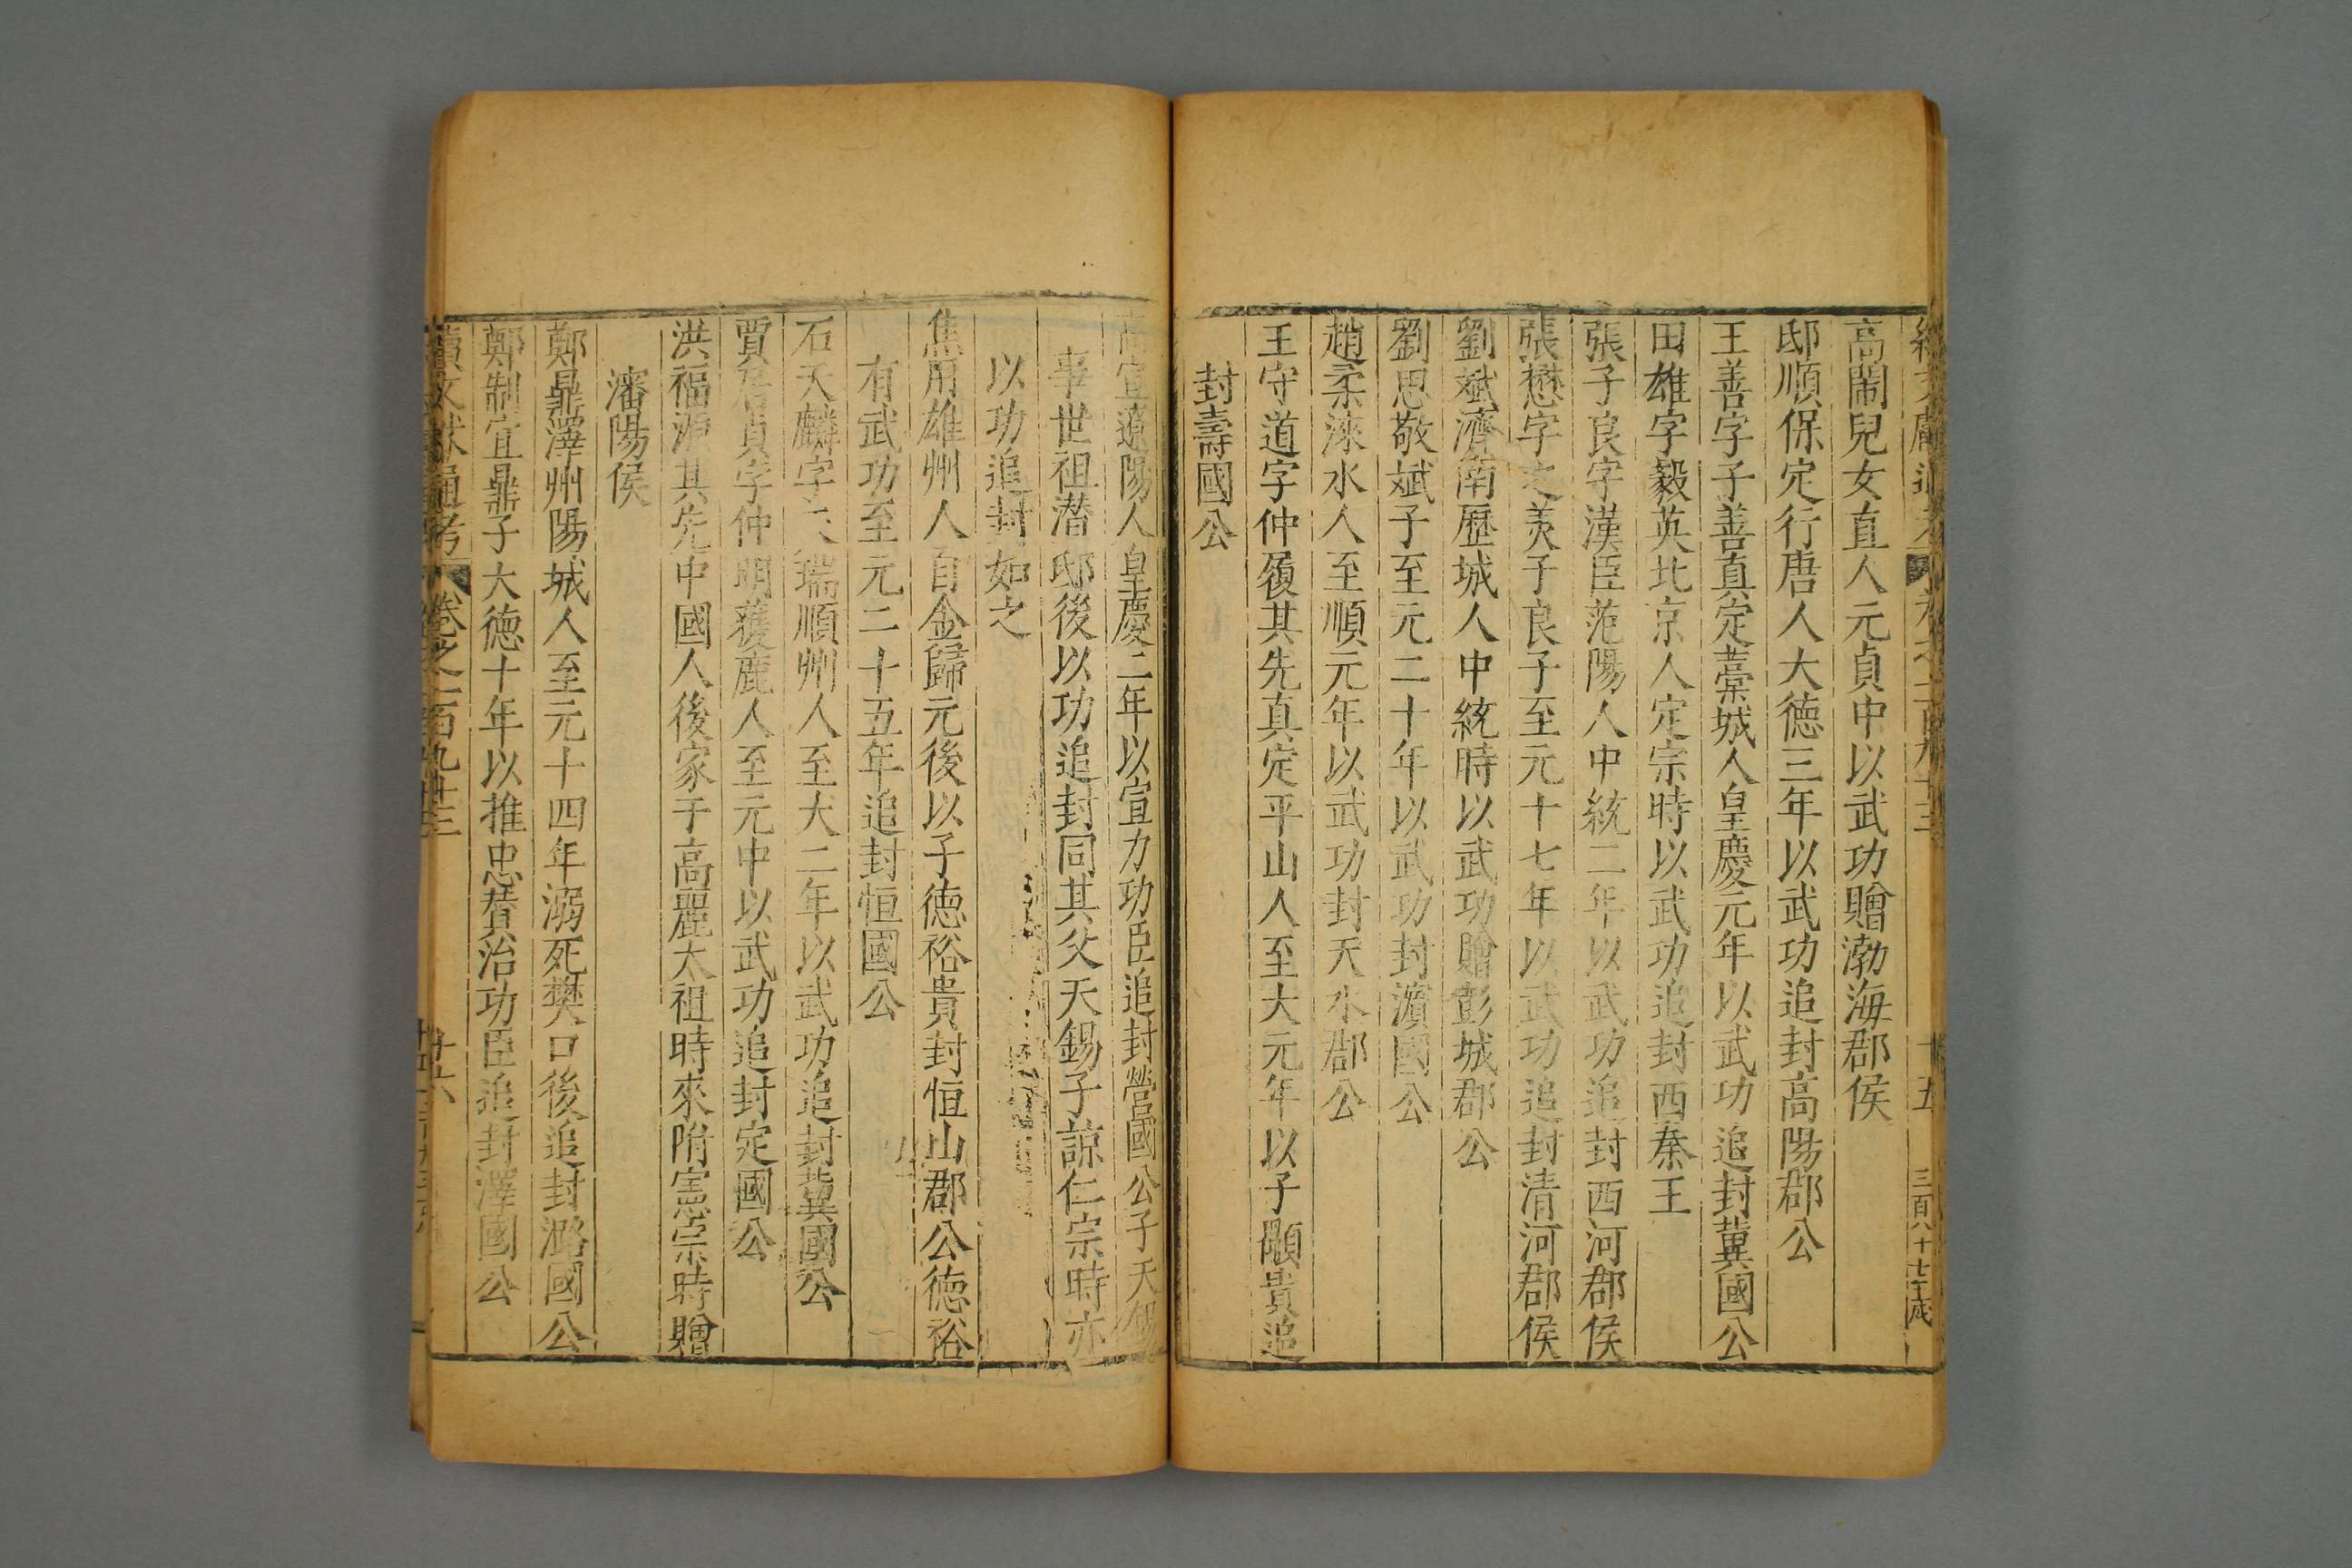 高鬧兒女直人元貞中以武功贈渤海郡侯
邸順保定行唐人大德三年以武功追封高陽郡公
王善字子善真定藁城人皇慶元年以武功追封冀國公
田雄字毅英北京人定宗時以武功追封西秦王
張子良字漢臣范陽人中統二年以武功追封西河郡侯
張懋字之美子良子至元十七年以武功追封清河郡侯
劉斌濟南歷城人中統時以武功贈彭城郡公
劉思敬斌子至元二十年以武功封濱國公
趙柔淶水人至順元年以武功封天水郡公
王守道字仲履其先真定平山人至大元年以子顒貴追
封壽國公
高宣遼陽人皇慶二年以宣力功臣追封營國公子天錫
事世祖潛邸後以功追封同其父天錫子諒仁宗時亦
以功追封如之
焦用雄州人自金歸元後以子德裕貴封恒山郡公德裕
有武功至元二十五年追封恒國公
石天麟字天瑞順州人至大二年以武功追封冀國公
賈居貞字仲明獲鹿人至元中以武功追封定國公
洪福源其先中國人後家于高麗太祖時來附憲宗時贈
瀋陽侯
鄭鼎澤州陽城人至元十四年溺死樊口後追封潞國公
鄭制宜鼎子大德十年以推忠贊治功臣追封澤國公
續文獻通考 卷之一百九十三